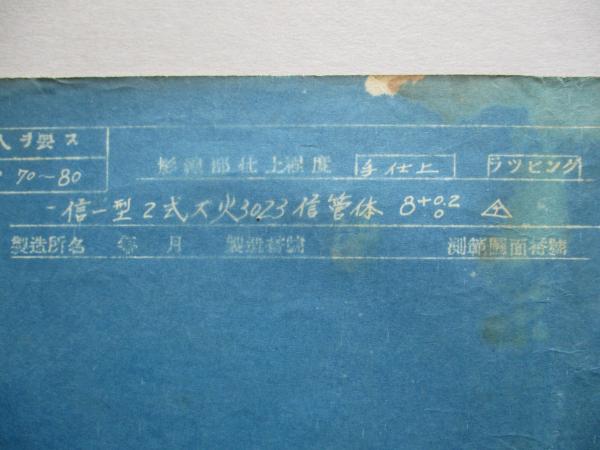 入ヲ要ス
70~80
影線部仕上程度 手仕上 ラツピング
信一型2式不火3023信管体 8+0.2 0
製造所名 年 月 製造番號 測範圖面番號